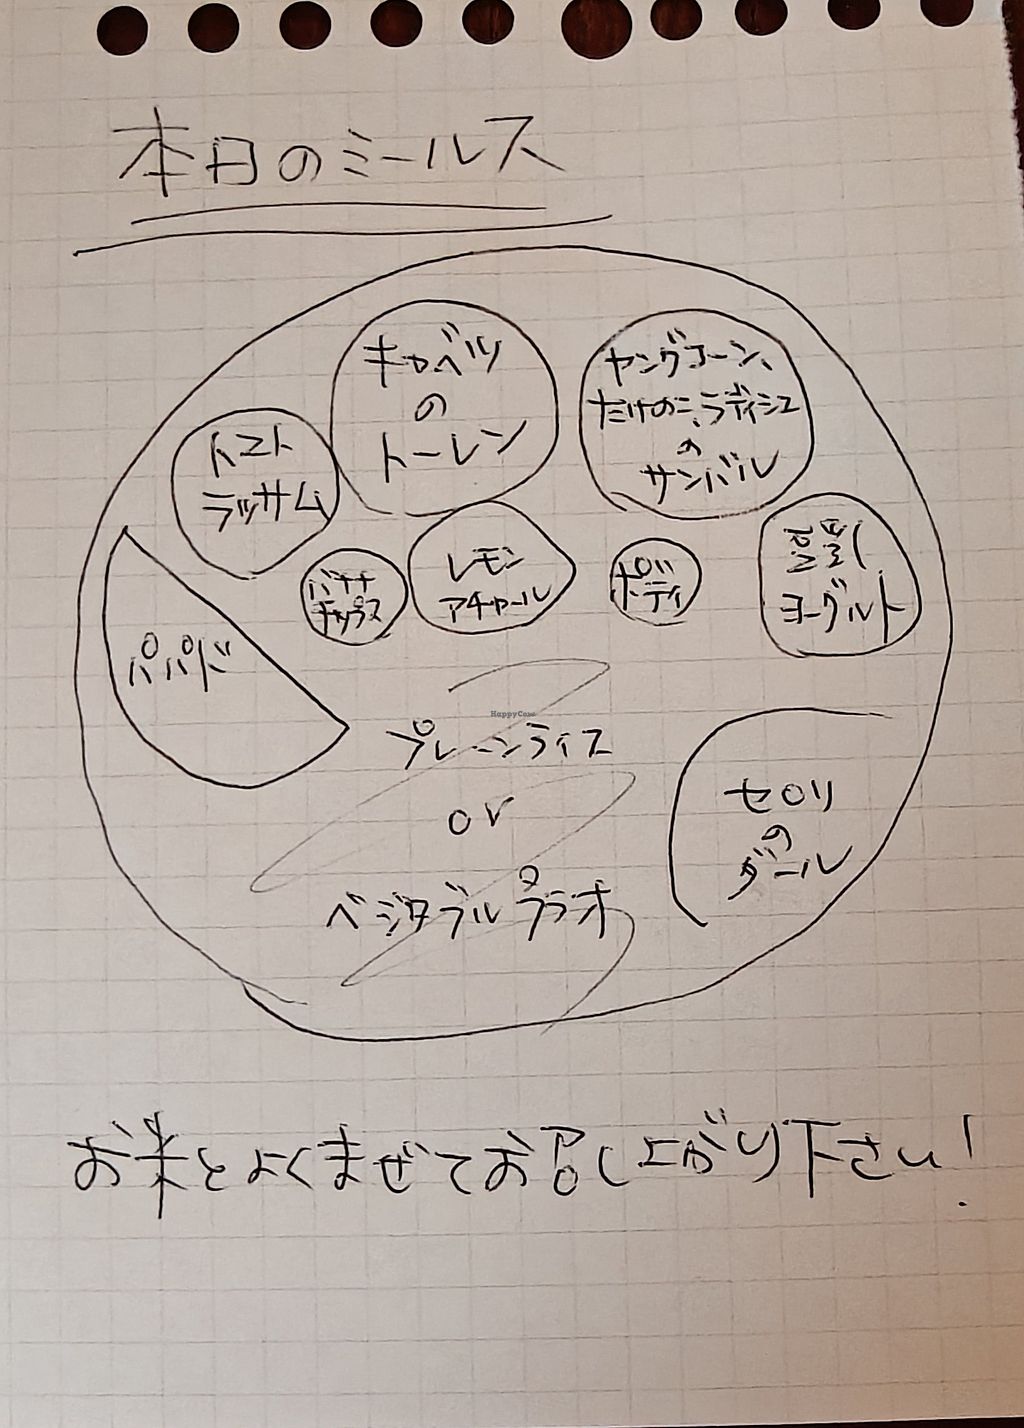 本日のミールス
キャベツ
の
トーレン
ヤングコーン、
だけのこ、ラディシュ
の
サンバル
トマト
ラッサム
バナナ
チップス
レモン
アチャール
ポディ
ヨーグルト
パパド
HappyCow
プレーンライス
or
ベジタブルプラオ
セロリ
の
ダール
お米とよくまぜてお召し上がり下さい!